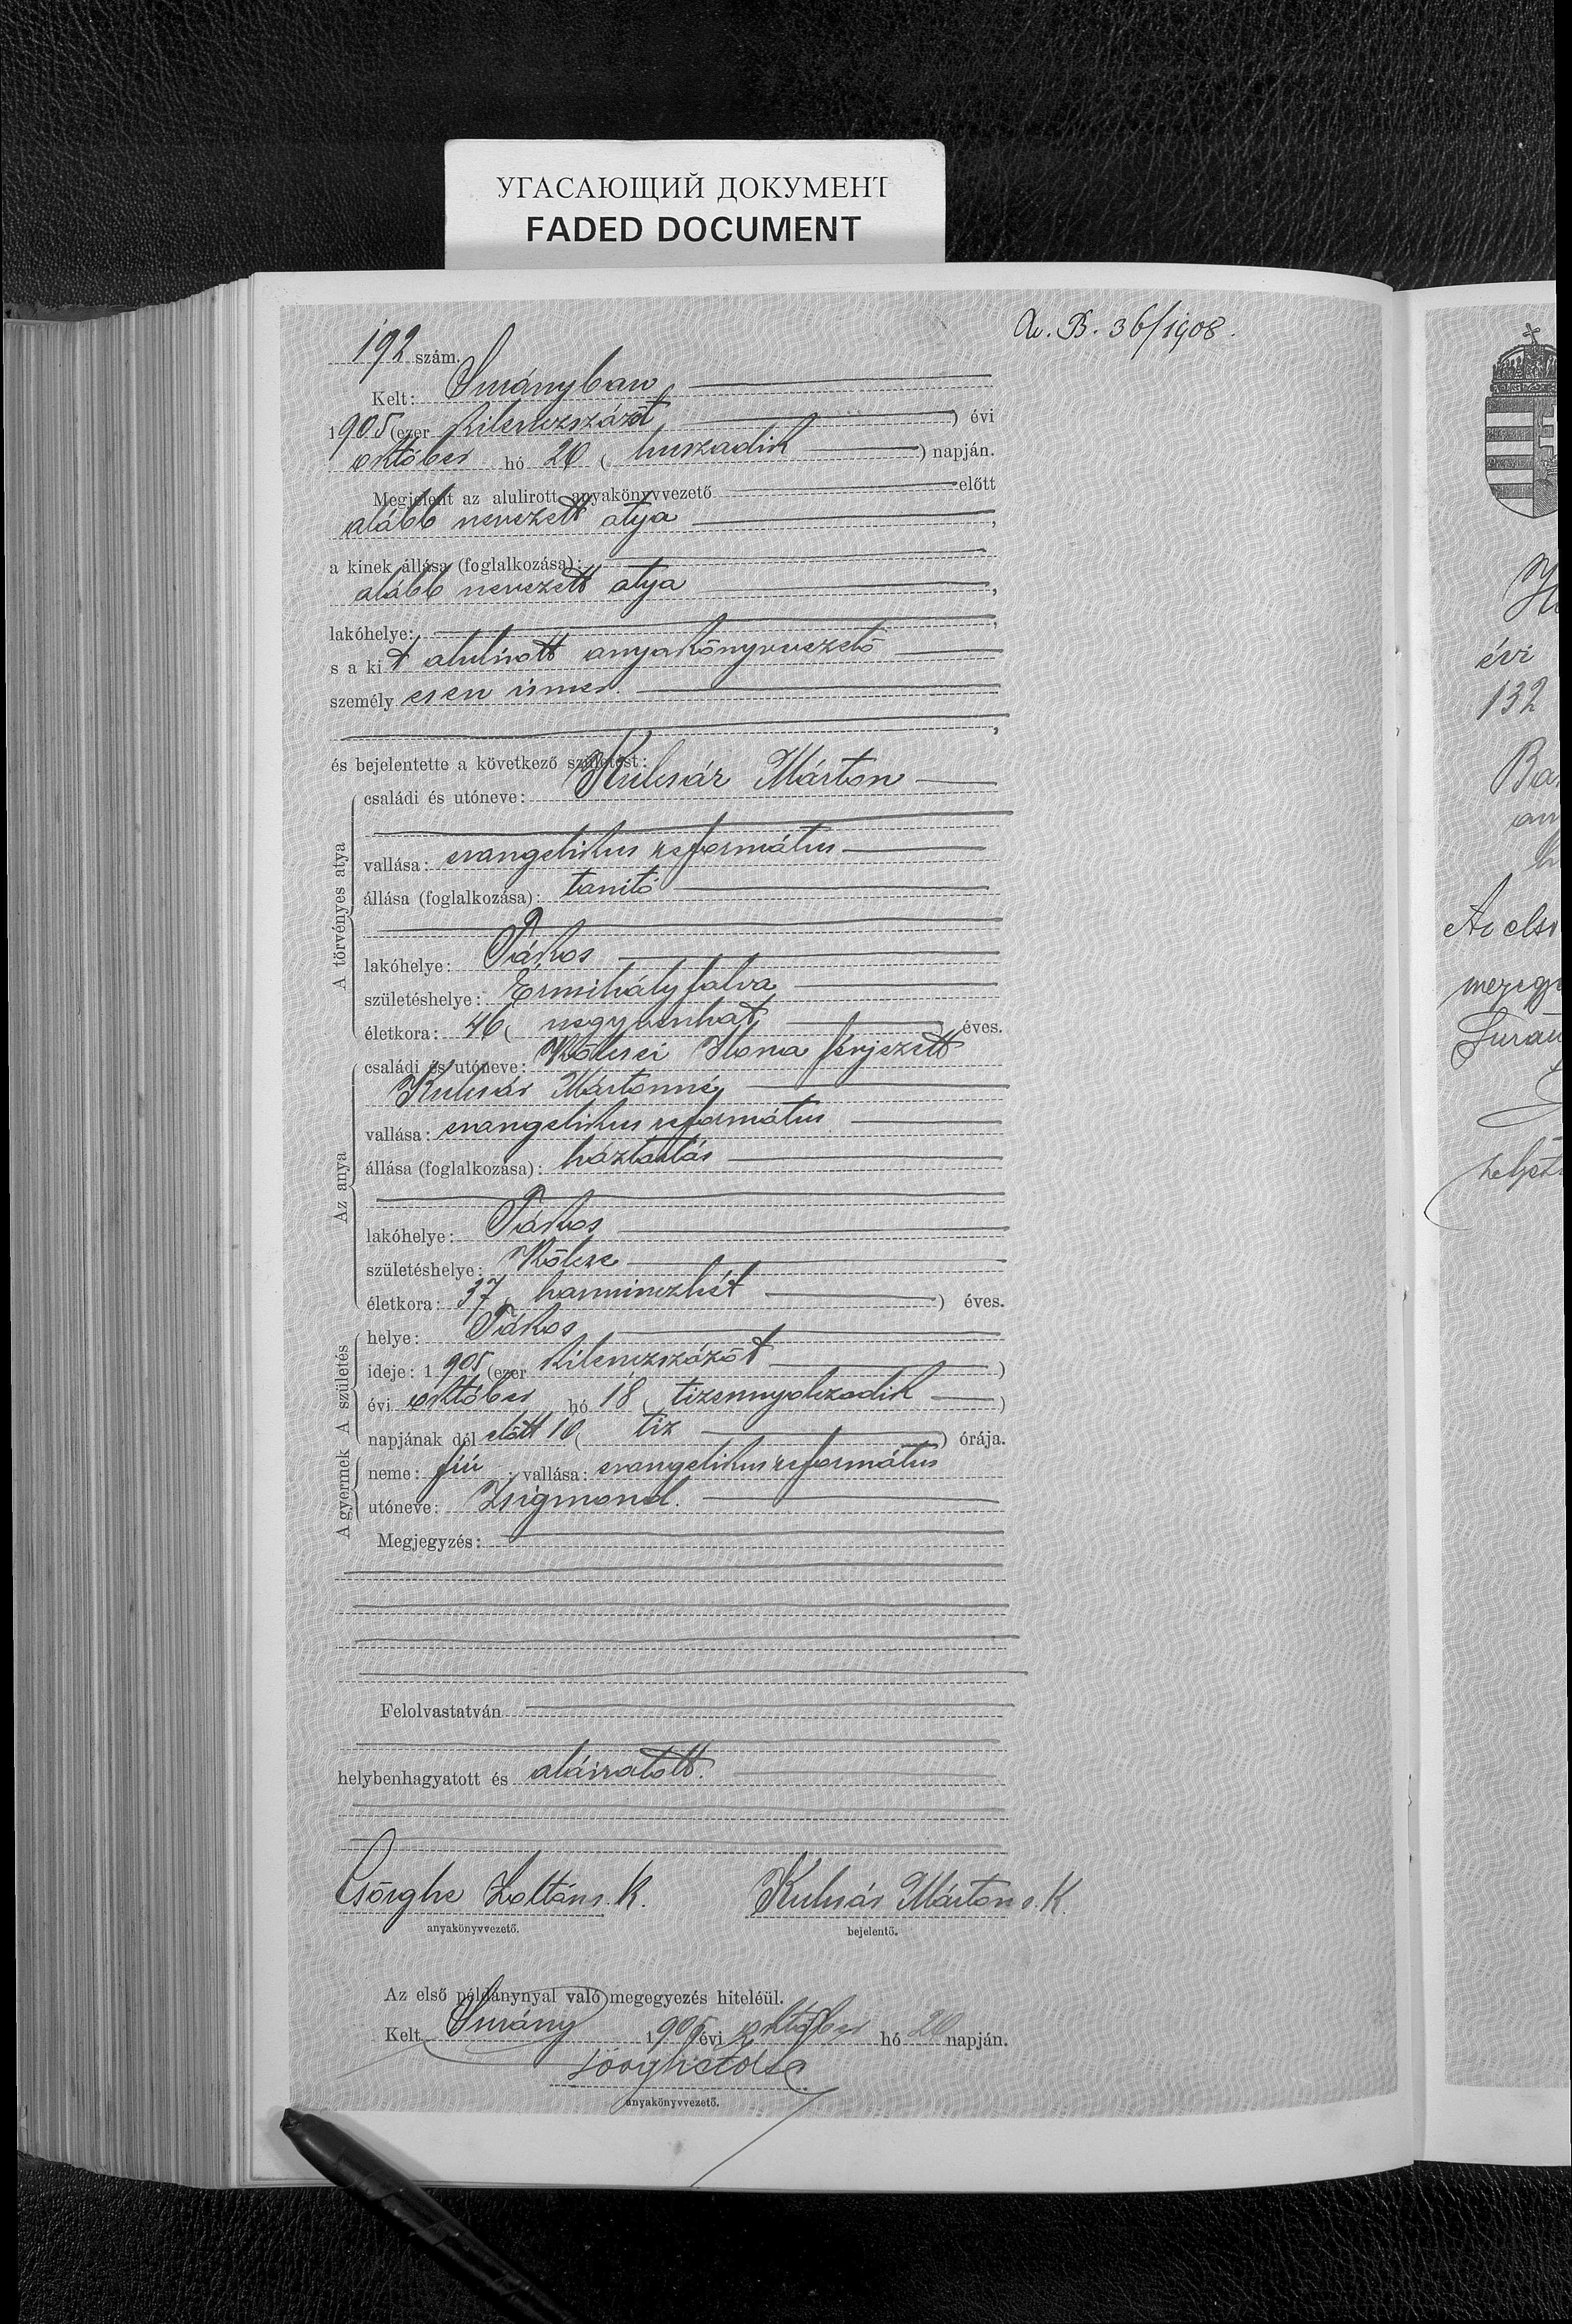 УГАСАЮЩИЙ ДОКУМЕНТ
FADED DOCUMENT
B. 36/1908.
192 szám.
Kelt: Surányban
1905 (ezer kilenczszázöt) évi
október hó 20 (huszadik) napján.
Megjelent az alulirott anyakönyvvezető előtt
alább nevezett atya,
a kinek állása (foglalkozása):
alább nevezett atya,
lakóhelye:,
s a kit alulirott anyakönyvvezető
személyesen ismer.
,
és bejelentette a következő születést:
A törvényes atya
családi és utóneve: Kulcsár Márton
vallása: evangelikus református
állása (foglalkozása): tanitó
lakóhelye: Tákos
születéshelye: Érmihályfalva
életkora: 46 (negyvenhat) éves.
Az anya
családi és utóneve: Kölcsei Ilona férjezett
Kulcsár Mártonné
vallása: evangelikus református
állása (foglalkozása): háztartás
lakóhelye: Tákos
születéshelye: Kölcse
életkora: 37 (harminczhét) éves.
A születés
helye: Tákos
ideje: 1905 (ezer kilenczszázöt)
évi október hó 18 (tizennyolczadik)
napjának dél előtt 10 (tiz) órája.
A gyermek
neme: fiú; vallása: evangelikus református
utóneve: Zsigmond.
Megjegyzés:
Felolvastatván
helybenhagyatott és aláiratott.
Csörghe Zoltán s. k. Kulcsár Márton s. k.
anyakönyvvezető. bejelentő.
Az első példánynyal való megegyezés hiteléül.
Kelt Surány 1905 évi október hó 20 napján.
anyakönyvvezető.
évi
132
Az első